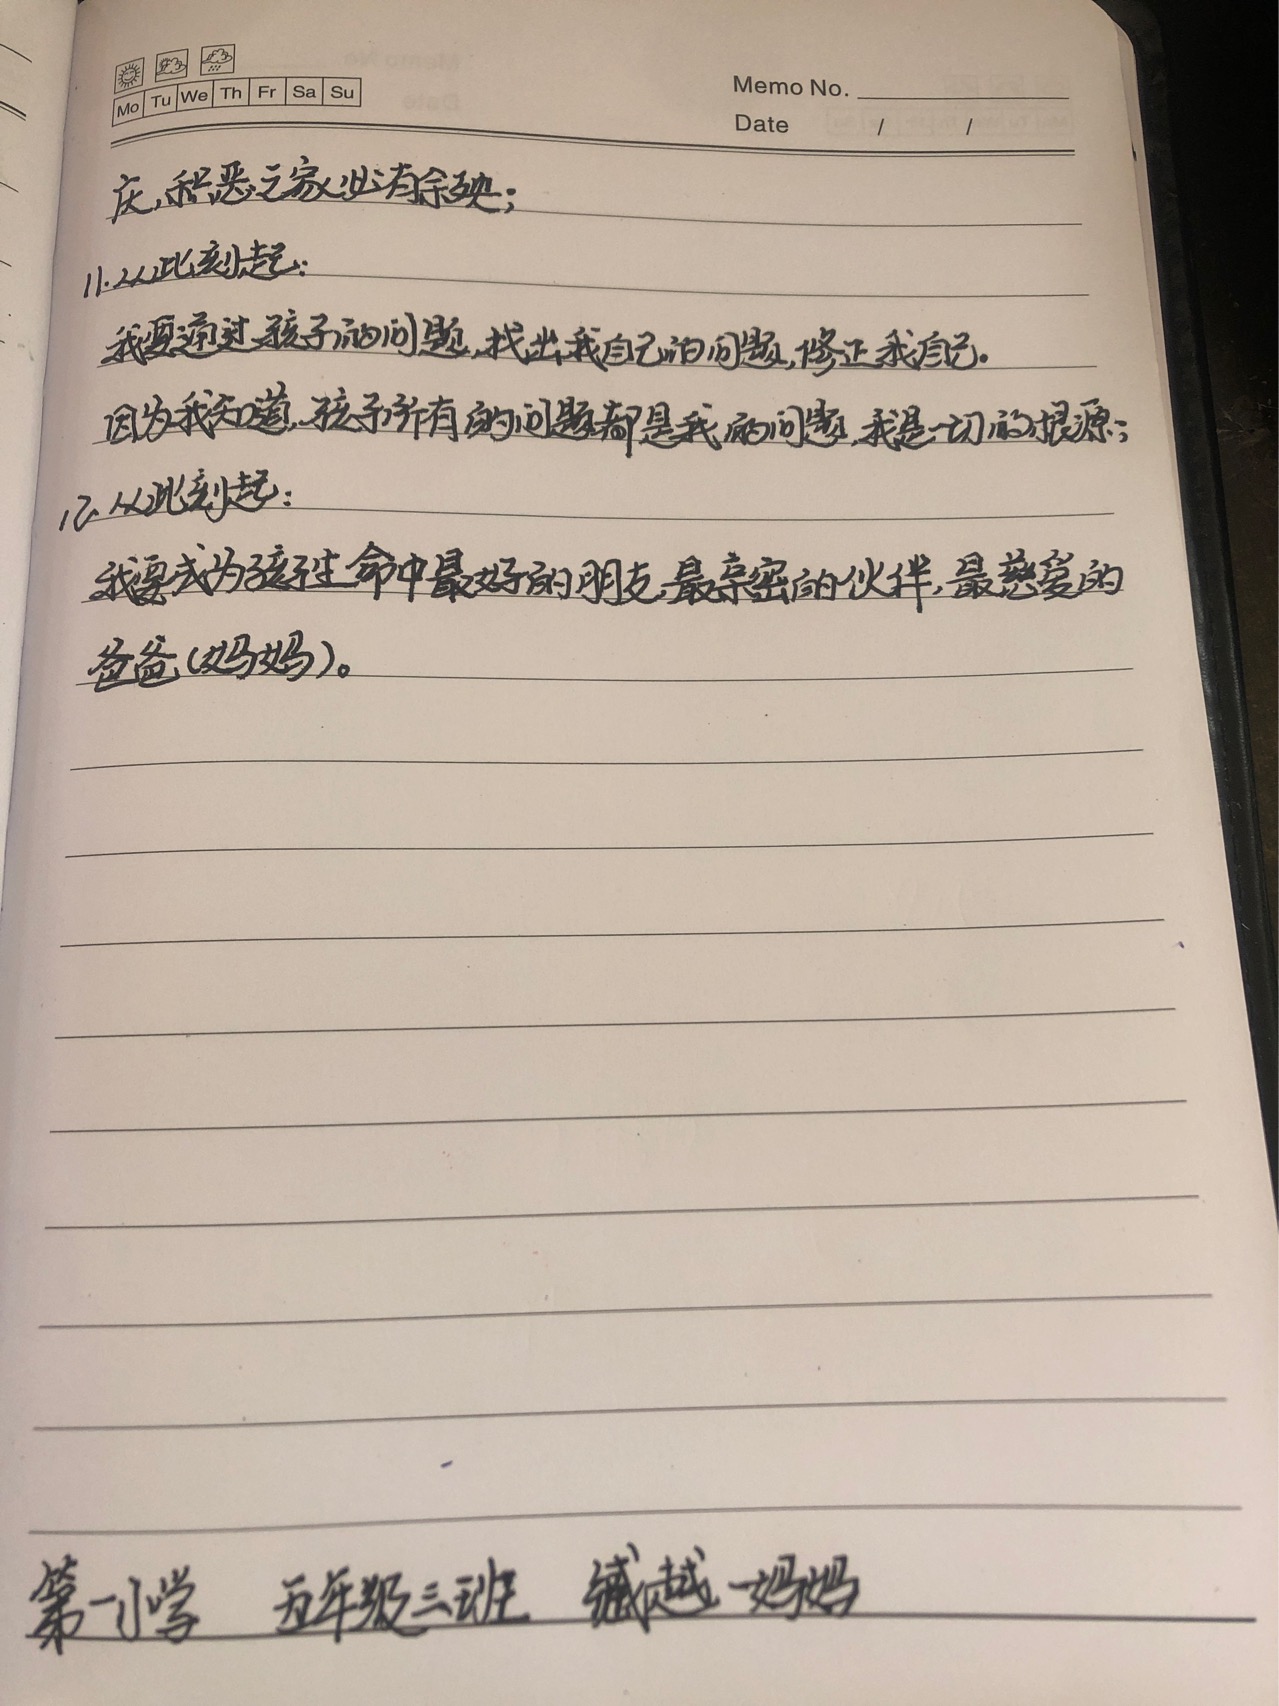 Mo Tu We Th Fr Sa Su
Memo No.
Date / /
庆,积恶之家必有余殃;
11.从此刻起:
我要通过孩子的问题,找出我自己的问题,修正我自己。
因为我知道,孩子所有的问题都是我的问题,我是一切的根源;
12.从此刻起:
我要成为孩子生命中最好的朋友,最亲密的伙伴,最慈爱的
爸爸(妈妈)。
第一小学 五年级三班 越一妈妈